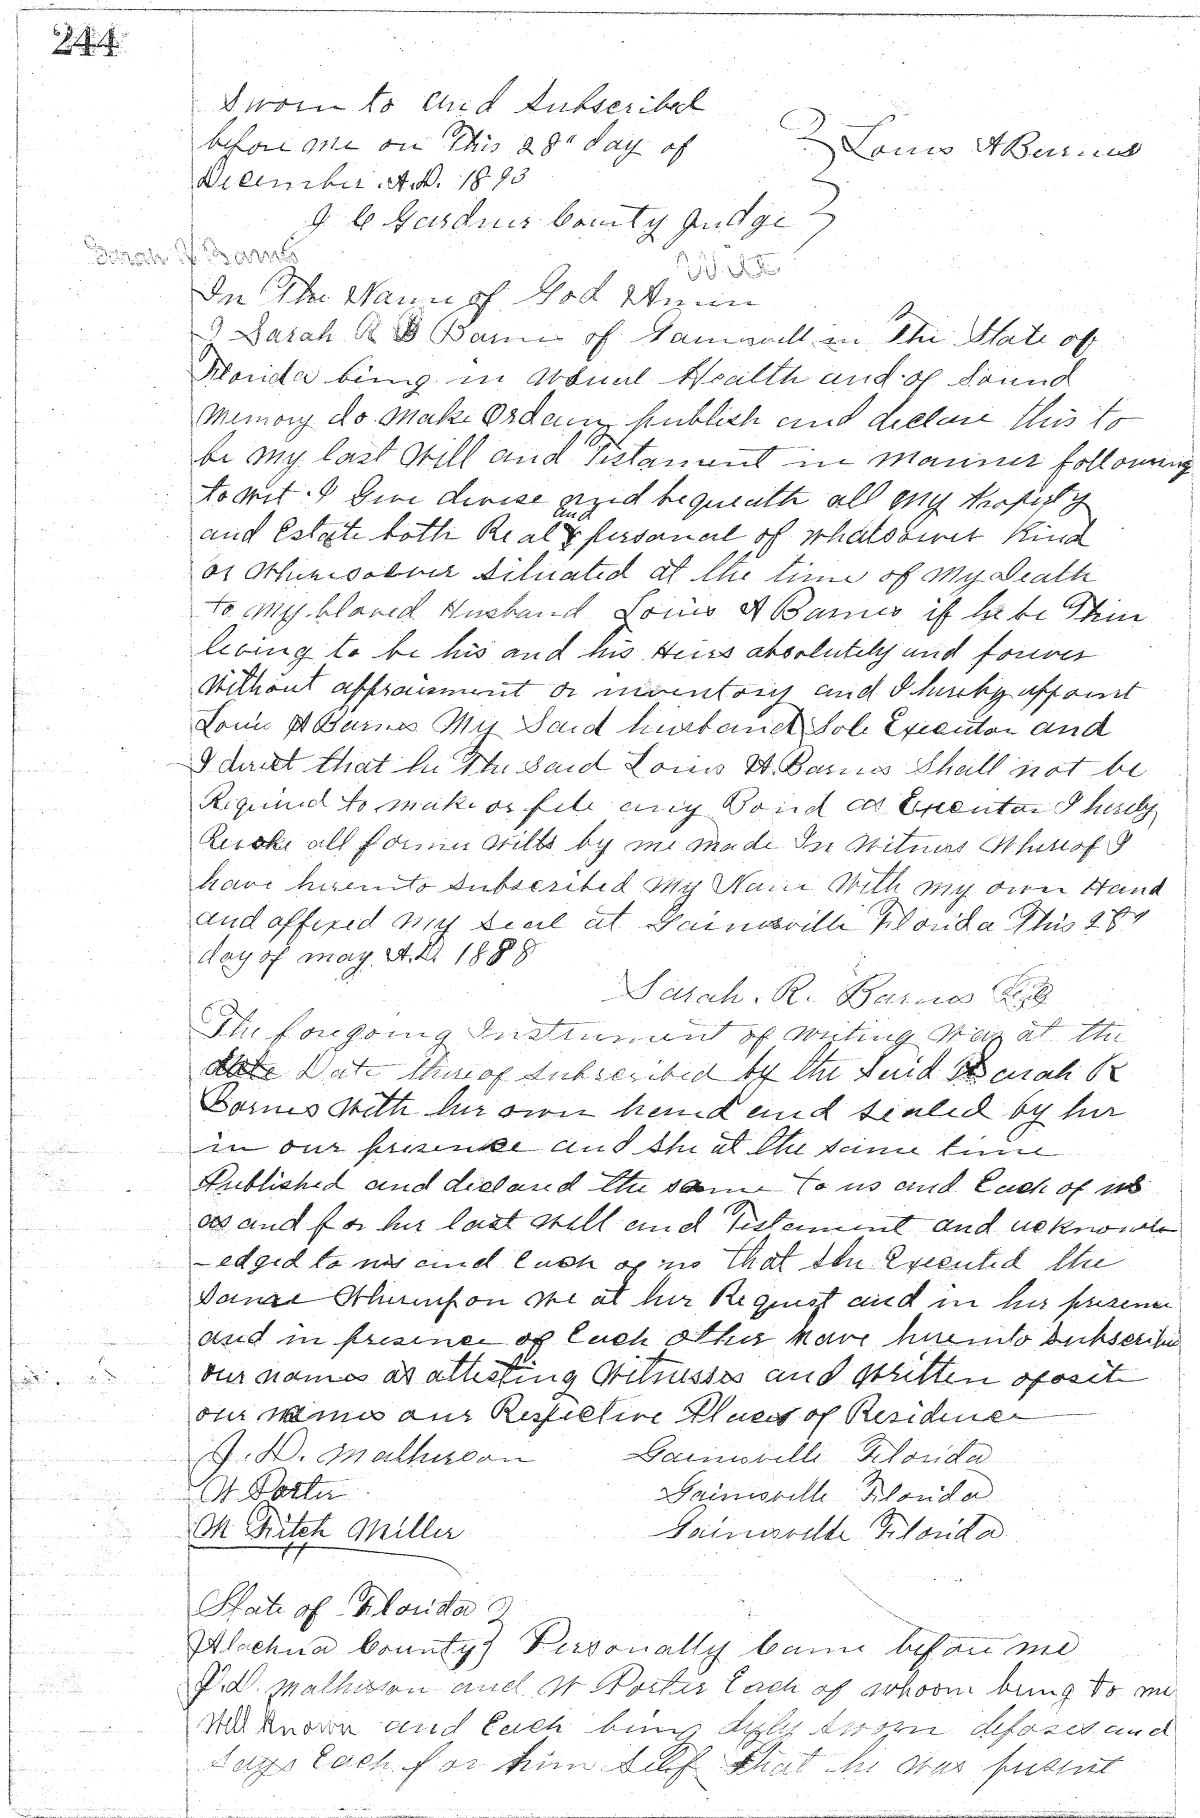 244
Sworn to and Subscribed
before me on This 28" day of
December. A.D. 1893
Louis A Barnes
J C Gardner County Judge
Sarah R Barnes
Will
In The Name of God Amen
I Sarah R B Barnes of Gainsvill in The State of
Florida being in Usual Health and of Sound
Memory do Make Ordain publish and declare this to
be My last Will and Testament in manner following
to wit. I Give devise and bequeath all my Property
and Estate both Real and personal of whatsoever Kind
or Wheresoever Situated at the time of My Death
to My beloved Husband Louis A Barnes if he be Then
living to be his and his Heirs absolutely and forever
Without appraisment or inventory and I hereby appoint
Louis A Barnes My Said husband Sole Executor and
I direct that he The Said Louis A. Barnes Shall not be
Required to make or file any Bond as Executor I hereby
Revoke all former Wills by me made In Witness Whereof I
have hereunto Subscribed My Name With my own Hand
and affixed My Seal at Gainesville Florida This 28"
day of may A.D. 1888
Sarah. R. Barnes
The foregoing Instrument of writing was at the
date Date thereof Subscribed by the Said Sarah R
Barnes With her own hand and sealed by her
in our presence and She at the same time
Published and declared the same to us and Each of us
as and for her last Will and Testament and acknowl
-edged to us and Each of us that She Executed the
Same Whereupon We at her Request and in her presence
and in presence of Each other have hereunto Subscribed
our names as attesting Witnesses and Written oposite
our names our Respective Places of Residence
J. D. Matheson Gainsville Florida
W Porter Gainsville Florida
M Fitch Miller Gainsville Florida
State of Florida
Alachua County Personally Came before me
J. D. Matheson and W Porter Each of whoom being to me
Well Known and Each being duly Sworn deposes and
Says Each for him Self that he was present